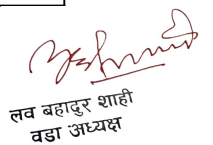 लव बहादुर शाही
वडा अध्यक्ष